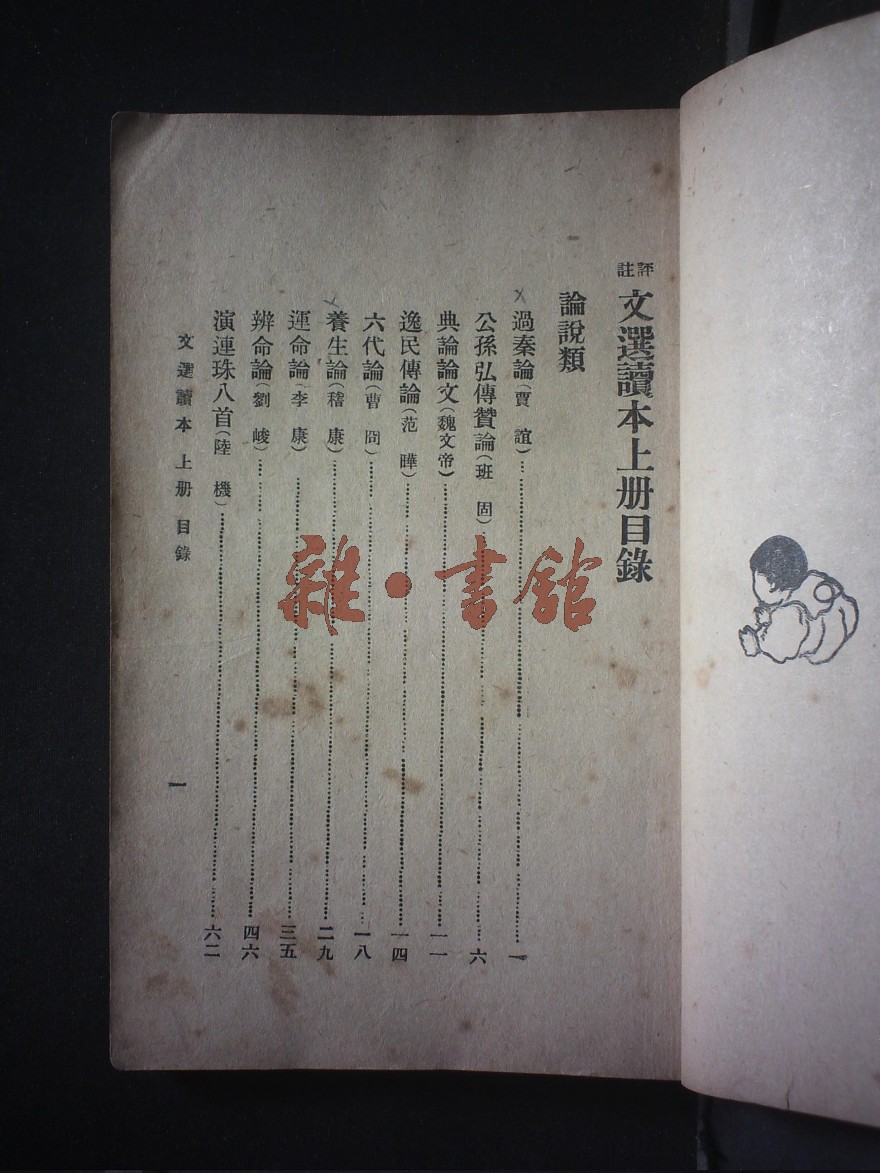 評註文選讀本上册目錄
論說類
過秦論(賈誼)一
公孫弘傳贊論(班固)六
典論論文(魏文帝)一一
逸民傳論(范曄)一四
六代論(曹冏)一八
養生論(嵇康)二九
運命論(李康)三五
辨命論(劉峻)四六
演連珠八首(陸機)六二
文選讀本 上册 目錄
一
雜·書館